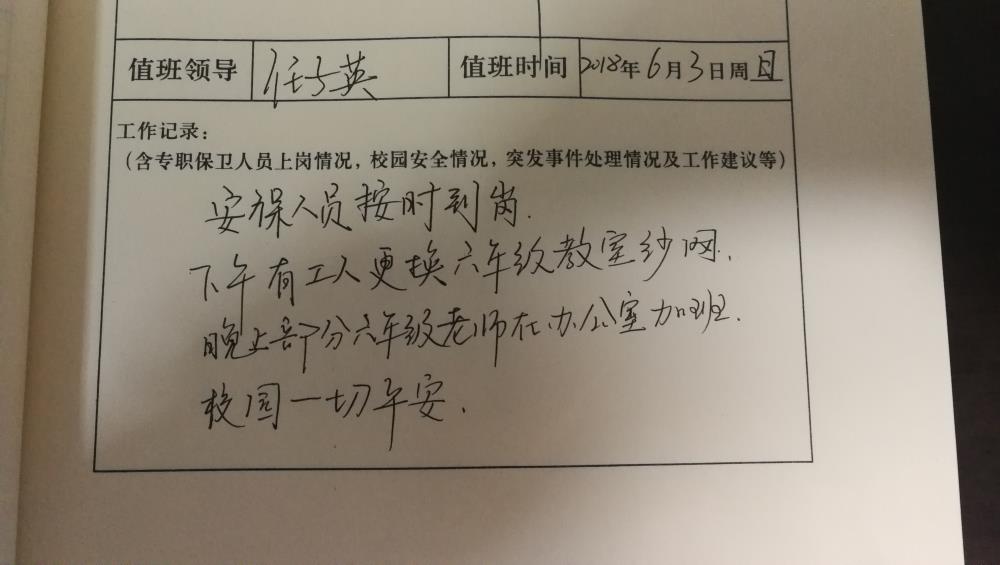 值班领导 任于英 值班时间 2018年6月3日周日
工作记录：
（含专职保卫人员上岗情况，校园安全情况，突发事件处理情况及工作建议等）
安保人员按时到岗.
下午有工人更换六年级教室纱网.
晚上部分六年级老师在办公室加班.
校园一切平安.